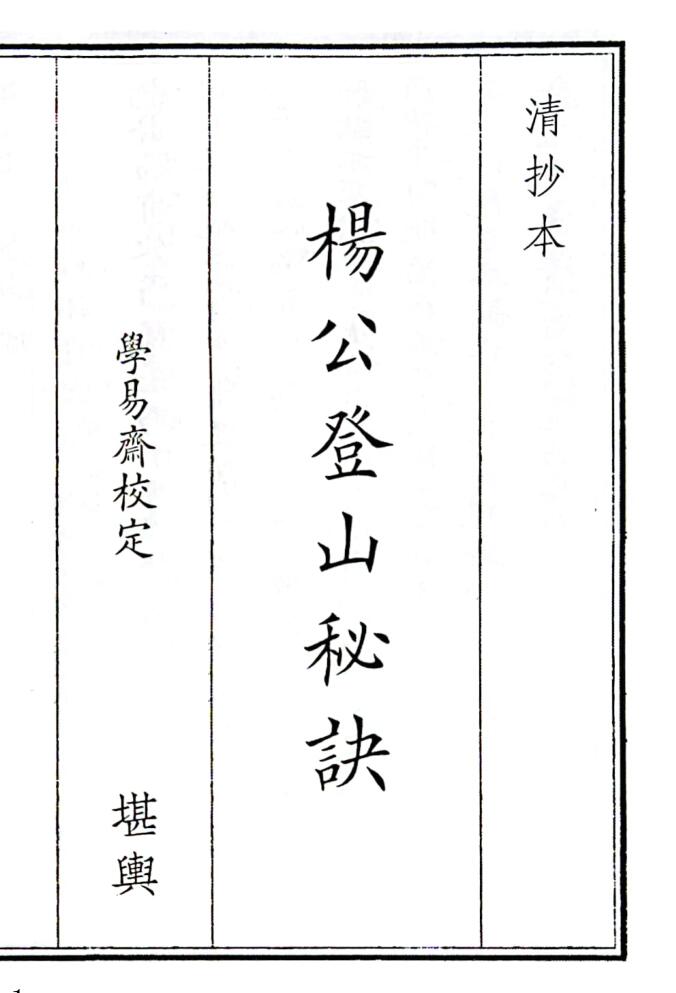 清抄本
楊公登山秘訣
學易齋校定
堪輿
1